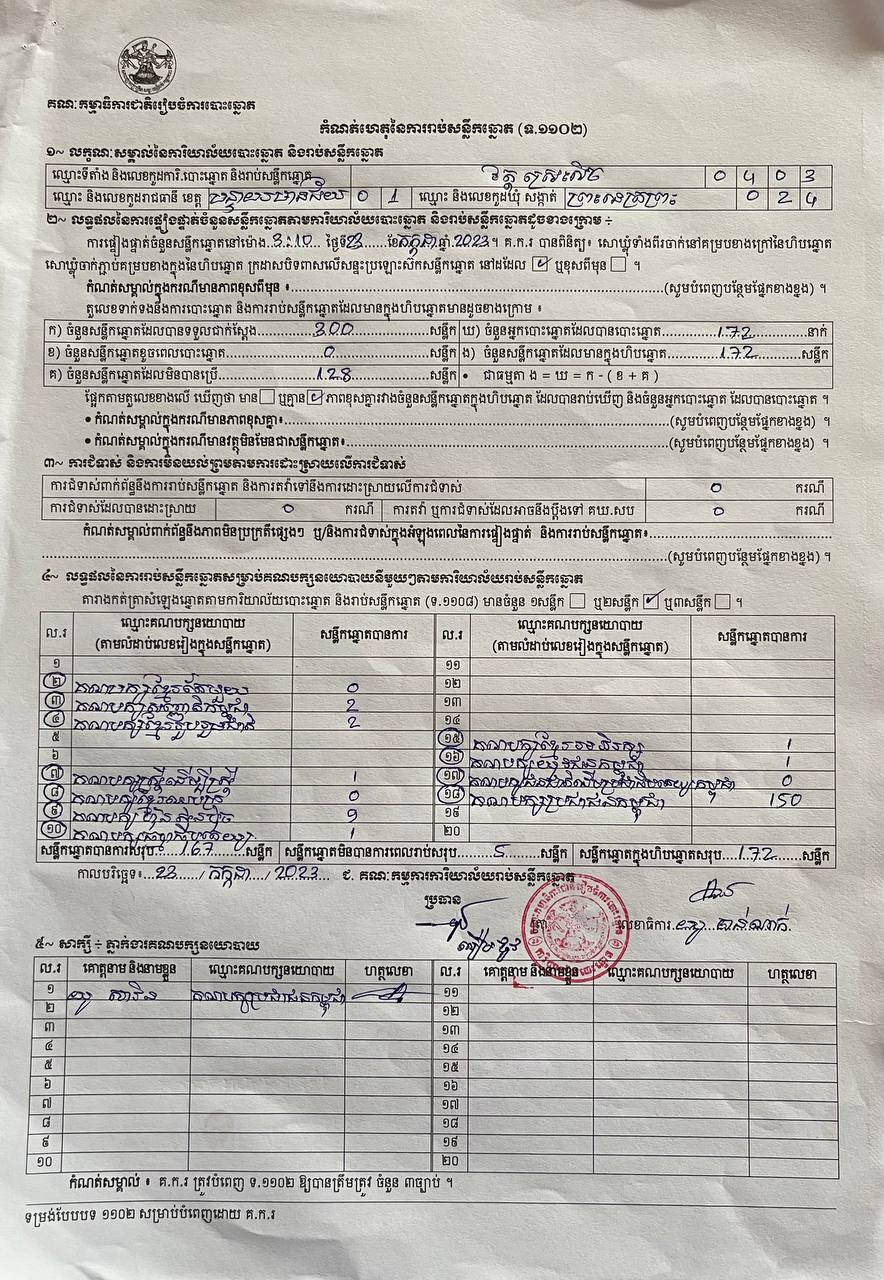 គណៈកម្មាធិការជាតិរៀបចំការបោះឆ្នោត
កំណត់ហេតុនៃការរាប់សន្លឹកឆ្នោត (ទ.១១០២)
១~ លក្ខណៈសម្គាល់នៃការិយាល័យបោះឆ្នោត និងរាប់សន្លឹកឆ្នោត
ឈ្មោះទីតាំង និងលេខកូដការិ.បោះឆ្នោត និងរាប់សន្លឹកឆ្នោត វត្ត 0 4 0 3
ឈ្មោះ និងលេខកូដរាជធានី ខេត្ត បន្ទាយមានជ័យ 0 1 ឈ្មោះ និងលេខកូដឃុំ សង្កាត់ ព្រះនេត្រព្រះ 0 2 4
២~ លទ្ធផលនៃការផ្ទៀងផ្ទាត់ចំនួនសន្លឹកឆ្នោតតាមការិយាល័យបោះឆ្នោត និងរាប់សន្លឹកឆ្នោតដូចខាងក្រោម ÷
ការផ្ទៀងផ្ទាត់ចំនួនសន្លឹកឆ្នោតនៅម៉ោង 3:10 ថ្ងៃទី 23 ខែ កក្កដា ឆ្នាំ 2023 ។ គ.ក.រ បានពិនិត្យ៖ សោឃ្មុំទាំងពីរចាក់នៅគម្របខាងក្រៅនៃហិបឆ្នោត
សោឃ្មុំចាក់ភ្ជាប់គម្របខាងក្នុងនៃហិបឆ្នោត ក្រដាសបិទពាសលើសន្ទះប្រឡោះស៊កសន្លឹកឆ្នោត នៅដដែល ☑ ឬខុសពីមុន ☐ ។
កំណត់សម្គាល់ក្នុងករណីមានភាពខុសពីមុន ៖ (សូមបំពេញបន្ថែមផ្នែកខាងខ្នង) ។
តួលេខទាក់ទងនឹងការបោះឆ្នោត និងការរាប់សន្លឹកឆ្នោតដែលមានក្នុងហិបឆ្នោតមានដូចខាងក្រោម ៖
ក) ចំនួនសន្លឹកឆ្នោតដែលបានទទួលជាក់ស្តែង 300 សន្លឹក ឃ) ចំនួនអ្នកបោះឆ្នោតដែលបានបោះឆ្នោត 172 នាក់
ខ) ចំនួនសន្លឹកឆ្នោតខូចពេលបោះឆ្នោត 0 សន្លឹក ង) ចំនួនសន្លឹកឆ្នោតដែលមានក្នុងហិបឆ្នោត 172 សន្លឹក
គ) ចំនួនសន្លឹកឆ្នោតដែលមិនបានប្រើ 128 សន្លឹក • ជាធម្មតា ង = ឃ = ក - ( ខ + គ )
ផ្អែកតាមតួលេខខាងលើ ឃើញថា មាន ☐ ឬគ្មាន ☑ ភាពខុសគ្នារវាងចំនួនសន្លឹកឆ្នោតក្នុងហិបឆ្នោត ដែលបានរាប់ឃើញ និងចំនួនអ្នកបោះឆ្នោត ដែលបានបោះឆ្នោត ។
• កំណត់សម្គាល់ក្នុងករណីមានភាពខុសគ្នា៖ (សូមបំពេញបន្ថែមផ្នែកខាងខ្នង) ។
• កំណត់សម្គាល់ក្នុងករណីមានវត្ថុមិនមែនជាសន្លឹកឆ្នោត៖ (សូមបំពេញបន្ថែមផ្នែកខាងខ្នង) ។
៣~ ការជំទាស់ និងការមិនយល់ព្រមតាមការដោះស្រាយលើការជំទាស់
ការជំទាស់ពាក់ព័ន្ធនឹងការរាប់សន្លឹកឆ្នោត និងការតវ៉ាទៅនឹងការដោះស្រាយលើការជំទាស់ 0 ករណី
ការជំទាស់ដែលបានដោះស្រាយ 0 ករណី ការតវ៉ា ឬការជំទាស់ដែលអាចនឹងប្តឹងទៅ គឃ.សប 0 ករណី
កំណត់សម្គាល់ពាក់ព័ន្ធនឹងភាពមិនប្រក្រតីផ្សេងៗ ឬ/និងការជំទាស់ក្នុងអំឡុងពេលនៃការផ្ទៀងផ្ទាត់ និងការរាប់សន្លឹកឆ្នោត៖
(សូមបំពេញបន្ថែមផ្នែកខាងខ្នង) ។
៤~ លទ្ធផលនៃការរាប់សន្លឹកឆ្នោតសម្រាប់គណបក្សនយោបាយនីមួយៗតាមការិយាល័យរាប់សន្លឹកឆ្នោត
តារាងកត់ត្រាសំឡេងឆ្នោតតាមការិយាល័យបោះឆ្នោត និងរាប់សន្លឹកឆ្នោត (ទ.១១០៨) មានចំនួន ១សន្លឹក ☐ ឬ២សន្លឹក ☑ ឬ៣សន្លឹក ☐ ។
ល.រ ឈ្មោះគណបក្សនយោបាយ (តាមលំដាប់លេខរៀងក្នុងសន្លឹកឆ្នោត) សន្លឹកឆ្នោតបានការ ល.រ ឈ្មោះគណបក្សនយោបាយ (តាមលំដាប់លេខរៀងក្នុងសន្លឹកឆ្នោត) សន្លឹកឆ្នោតបានការ
១ ១១
២ គណបក្សខ្មែរតែមួយ 0 ១២
៣ គណបក្ស 2 ១៣
៤ គណបក្សខ្មែររួបរួមជាតិ 2 ១៤
៥ ១៥ គណបក្សខ្មែរ 1
៦ ១៦ គណបក្ស កម្ពុជា 1
៧ គណបក្សស្ត្រីដើម្បីស្ត្រី 1 ១៧ គណបក្សជនជាតិដើមប្រជាធិបតេយ្យកម្ពុជា 0
៨ គណបក្ស 0 ១៨ គណបក្សប្រជាជនកម្ពុជា 150
៩ គណបក្សហ៊្វុនស៊ិនប៉ិច 9 ១៩
១០ គណបក្ស 1 ២០
សន្លឹកឆ្នោតបានការសរុប 167 សន្លឹក សន្លឹកឆ្នោតមិនបានការពេលរាប់សរុប 5 សន្លឹក សន្លឹកឆ្នោតក្នុងហិបឆ្នោតសរុប 172 សន្លឹក
កាលបរិច្ឆេទ៖ 23 / កក្កដា / 2023 ជ. គណៈកម្មការការិយាល័យរាប់សន្លឹកឆ្នោត
ប្រធាន
លេខាធិការ
៥~ សាក្សី ÷ ភ្នាក់ងារគណបក្សនយោបាយ
ល.រ គោត្តនាម និងនាមខ្លួន ឈ្មោះគណបក្សនយោបាយ ហត្ថលេខា ល.រ គោត្តនាម និងនាមខ្លួន ឈ្មោះគណបក្សនយោបាយ ហត្ថលេខា
១ គណបក្សប្រជាជនកម្ពុជា ១១
២ ១២
៣ ១៣
៤ ១៤
៥ ១៥
៦ ១៦
៧ ១៧
៨ ១៨
៩ ១៩
១០ ២០
កំណត់សម្គាល់ ៖ គ.ក.រ ត្រូវបំពេញ ទ.១១០២ ឱ្យបានត្រឹមត្រូវ ចំនួន ៣ច្បាប់ ។
ទម្រង់បែបបទ ១១០២ សម្រាប់បំពេញដោយ គ.ក.រ